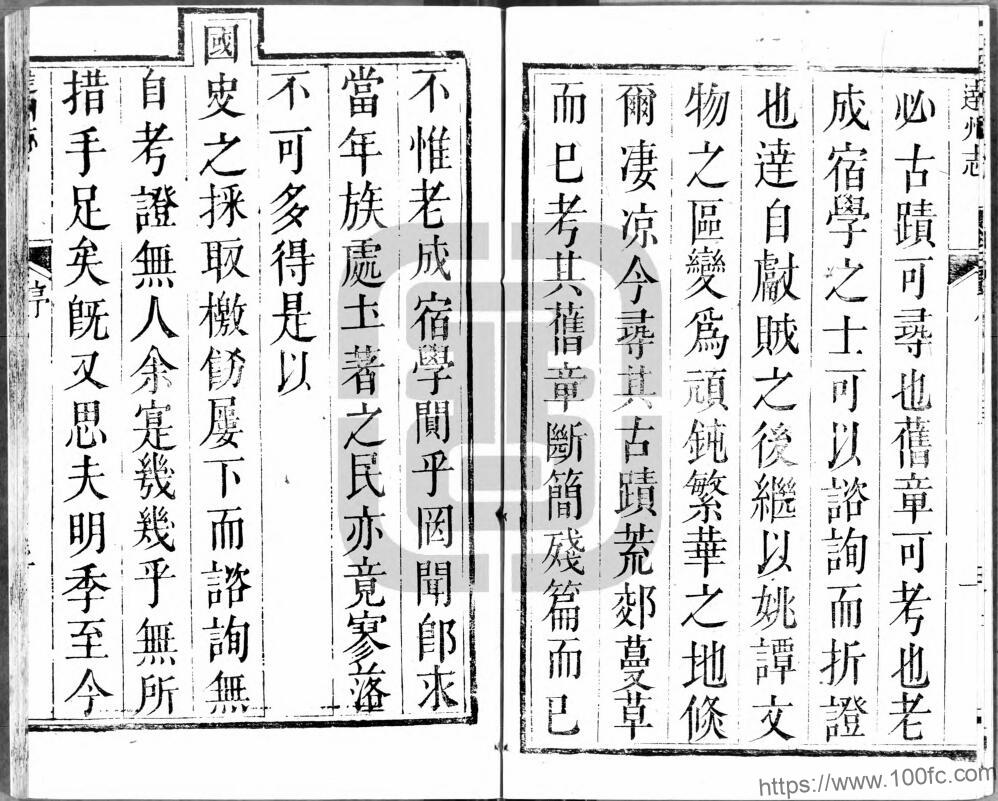 達州志
必古蹟可尋也舊章可考也老
成宿學之士可以諮詢而折證
也達自獻賊之後繼以姚譚文
物之區變爲頑鈍繁華之地倐
爾凄凉今尋其古蹟荒郊蔓草
而已考其舊章斷簡殘篇而已
不惟老成宿學闃乎罔聞卽求
當年族處土著之民亦竟寥落
不可多得是以
國史之採取檄飭屢下而諮詢無
自考證無人余寔㡬幾乎無所
措手足矣旣又思夫明季至今
序
https://www.100fc.com